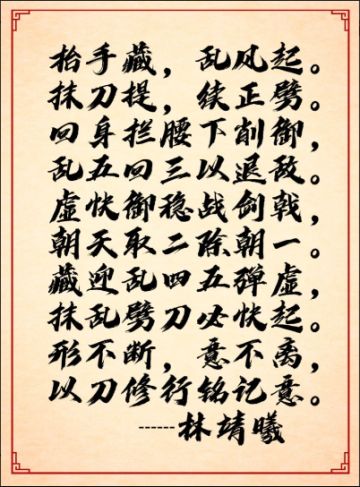 抬手藏，乱风起。
抹刀提，续正劈。
回身拦腰下削御，
乱五回三以退敌。
虚快御稳战剑戟，
朝天取二除朝一。
藏迎乱四五弹虚，
抹乱劈刀必快起。
形不断，意不离，
以刀修行铭记意。
------林靖曦